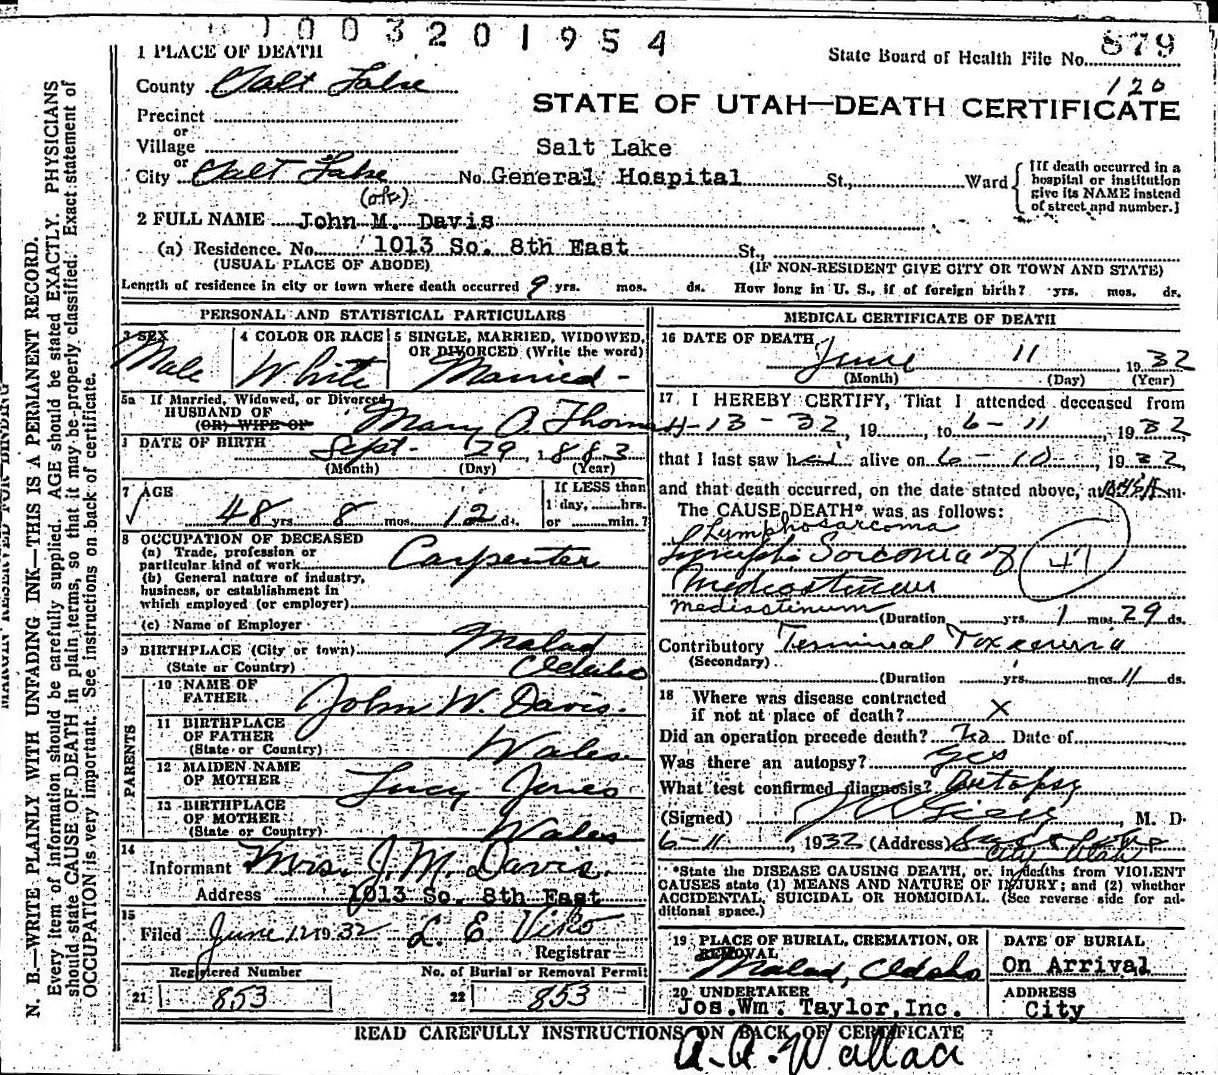 1003201954
1 PLACE OF DEATH
State Board of Health File No. 879
120
County Salt Lake
STATE OF UTAH—DEATH CERTIFICATE
Precinct
or
Village
Salt Lake
or
City Salt Lake No. General Hospital St., Ward
[If death occurred in a hospital or institution give its NAME instead of street and number.]
(ok)
2 FULL NAME John M. Davis
(a) Residence. No. 1013 So. 8th East St.,
(USUAL PLACE OF ABODE) (IF NON-RESIDENT GIVE CITY OR TOWN AND STATE)
Length of residence in city or town where death occurred 9 yrs. mos. ds. How long in U. S., if of foreign birth? yrs. mos. ds.
PERSONAL AND STATISTICAL PARTICULARS
3 SEX 4 COLOR OR RACE 5 SINGLE, MARRIED, WIDOWED,
OR DIVORCED (Write the word)
Male White Married
5a If Married, Widowed, or Divorced
HUSBAND OF
(OR) WIFE OF Mary A. Thomas
DATE OF BIRTH Sept. 29 1883
(Month) (Day) (Year)
7 AGE
If LESS than
1 day, hrs.
or min.?
48 yrs. 8 mos. 12 ds.
8 OCCUPATION OF DECEASED
(a) Trade, profession or
particular kind of work Carpenter
(b) General nature of industry,
business, or establishment in
which employed (or employer)
(c) Name of Employer
9 BIRTHPLACE (City or town) Malad
(State or Country) Idaho
PARENTS
10 NAME OF
FATHER John W. Davis.
11 BIRTHPLACE
OF FATHER
(State or Country) Wales.
12 MAIDEN NAME
OF MOTHER Lucy Jones
13 BIRTHPLACE
OF MOTHER
(State or Country) Wales
14
Informant Mrs. J. M. Davis.
Address 1013 So. 8th East
15
Filed June 12 1932 L. E. Viko
Registrar
Registered Number No. of Burial or Removal Permit
21 853 22 853
MEDICAL CERTIFICATE OF DEATH
16 DATE OF DEATH
June 11 1932
(Month) (Day) (Year)
17 I HEREBY CERTIFY, That I attended deceased from
4-13-32, 19 , to 6-11, 1932
that I last saw h alive on 6-10, 1932,
and that death occurred, on the date stated above, at m.
The CAUSE DEATH* was as follows:
Lymphosarcoma
Lympho Sarcoma of 47
Mediastinum
mediastinum
(Duration yrs. 1 mos. 29 ds.
Contributory Terminal Toxaemia
(Secondary)
(Duration yrs. mos. 11 ds.
18 Where was disease contracted
if not at place of death? X
Did an operation precede death? No Date of
Was there an autopsy? yes
What test confirmed diagnosis? Autopsy
(Signed) , M. D.
6-11, 1932 (Address)
City Utah
*State the DISEASE CAUSING DEATH, or, in deaths from VIOLENT
CAUSES state (1) MEANS AND NATURE OF INJURY; and (2) whether
ACCIDENTAL, SUICIDAL OR HOMICIDAL. (See reverse side for ad-
ditional space.)
19 PLACE OF BURIAL, CREMATION, OR REMOVAL
DATE OF BURIAL
Malad, Idaho On Arrival
20 UNDERTAKER ADDRESS
Jos. Wm. Taylor, Inc. City
READ CAREFULLY INSTRUCTIONS ON BACK OF CERTIFICATE
A. A. Wallace
MARGIN RESERVED FOR BINDING
N. B.—WRITE PLAINLY WITH UNFADING INK—THIS IS A PERMANENT RECORD.
Every item of information should be carefully supplied. AGE should be stated EXACTLY. PHYSICIANS
should state CAUSE OF DEATH in plain terms, so that it may be properly classified. Exact statement of
OCCUPATION is very important. See instructions on back of certificate.